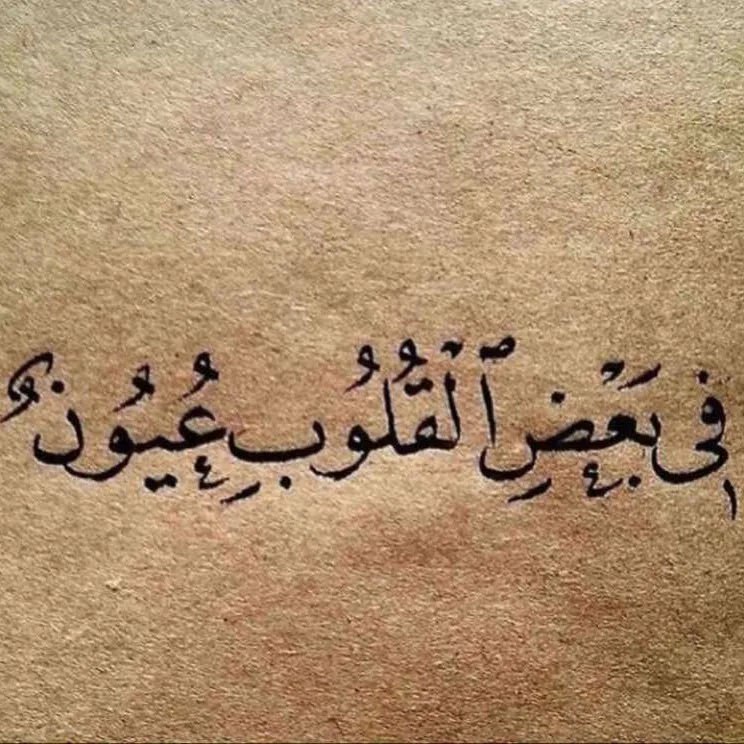 فِي بَعْضِ ٱلْقُلُوبِ عُيُونٌ